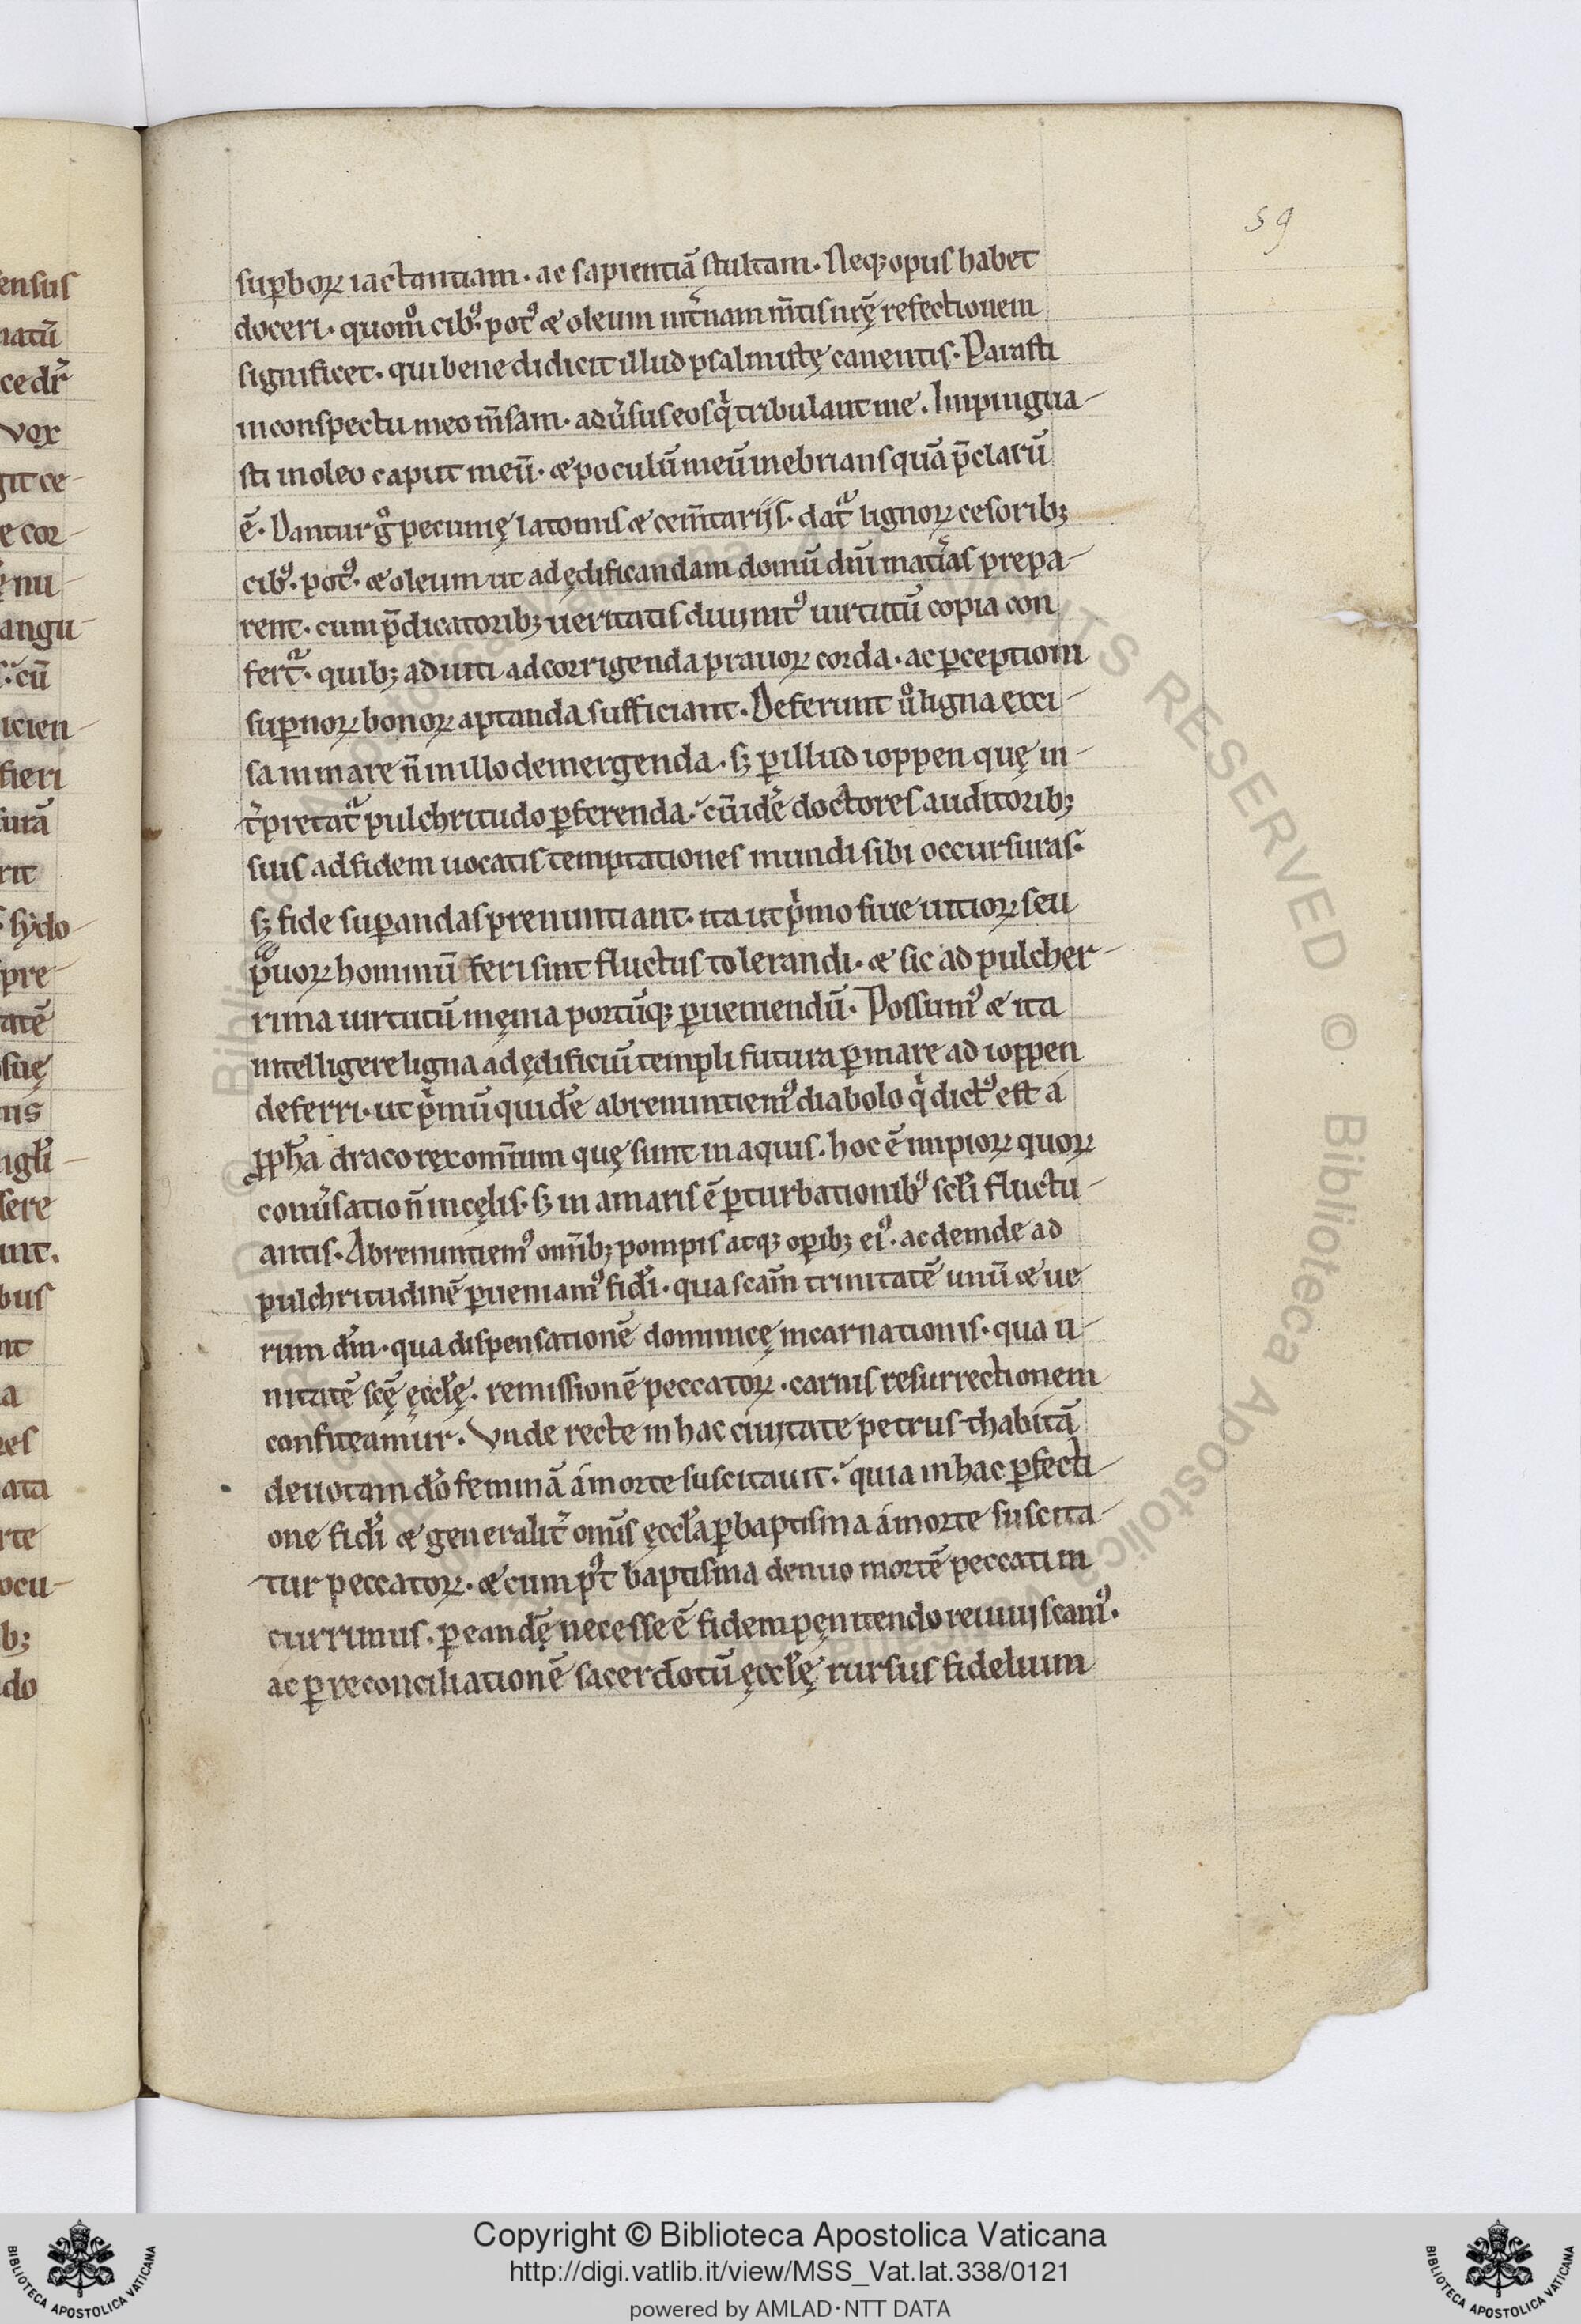 59
suꝑboꝝ iactantiam · ac sapientiā stultam · Neqꝫ opus habet
doceri · quom̊ cibꝰ · potꝰ & oleum int̾nam m̄tis nr̄ę refectionem
significet · qui bene didicit illud psalmistę canentis · Parasti
in conspectu meo m̄sam · adu̾sus eos qͥ tribulant me . Impingua-
sti in oleo caput meū · & poculū meū inebrians quā p̄clarū
ē · Dantur gͦ pecunię latomis & cem̄tarijs · datᷓ lignoꝝ cesoribꝫ
cibꝰ · potꝰ · & oleum ut ad ędificandam domū dn̄i mat̾ias prepa-
rent · cum p̄dicatoribꝫ ueritatis diuinitꝰ uirtutū copia con
fertᷓ · quibꝫ adiuti ad corrigenda prauoꝝ corda · ac ꝑceptioni
suꝑnoꝝ bonoꝝ aptanda sufficiant · Deferunt uͦ ligna exci-
sa in mare n̄ in illo demergenda · sꝫ ꝑ illud ioppen quę in-
t̾pretatᷓ pulchritudo ꝑferenda · cū idē doctores auditoribꝫ
suis ad fidem uocatis temptationes mundi sibi occursuras ·
sꝫ fide suꝑandas prenuntiant · ita ut pͥmo siue uitioꝝ seu
pᷓuoꝝ hominū feri sint fluctus tolerandi · & sic ad pulcher-
rima uirtutū męnia portūqꝫ ꝑueniendū · Possumꝰ & ita
intelligere ligna ad ędificiū templi futura ꝑ mare ad ioppen
deferri · ut pͥmū quidē abrenuntiemꝰ diabolo qͥ dictꝰ est a
ꝓph̄a draco rex omnium quę sunt in aquis . hoc ē impioꝝ quoꝝ
conu̾satio n̄ in cęlis · sꝫ in amaris ē ꝑturbationibꝰ scl̄i fluctu-
antis · Abrenuntiemꝰ omībꝫ pompis atqꝫ oꝑibꝫ eiꝰ · ac deinde ad
pulchritudinē ꝑueniamꝰ fidei · qua scām trinitatē unū & ue
rum dm̄ · qua dispensationē dominicę incarnationis · qua u-
nitatē scę̄ ęccl̄ę · remissionē peccatoꝝ · carnis resurrectionem
confiteamur · Vnde recte in hac ciuitate petrus thabitā
deuotam dō feminā a morte suscitauit · quia in hac ꝑfecti-
one fidei & generalit̾ omīs ęccl̄a ꝑ baptisma a morte suscita-
tur peccatoꝝ · & cum pꝰt baptisma denuo mortē peccati in
currimus · ꝑ eandē necesse ē fidem pęnitendo reuiuiscamꝰ ·
ac ꝑ reconciliationē sacerdotū ęccl̄ę rursus fidelium
Copyright © Biblioteca Apostolica Vaticana
http://digi.vatlib.it/view/MSS_Vat.lat.338/0121
powered by AMLAD·NTT DATA